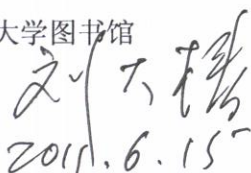 大学图书馆
刘大椿
2011.6.15